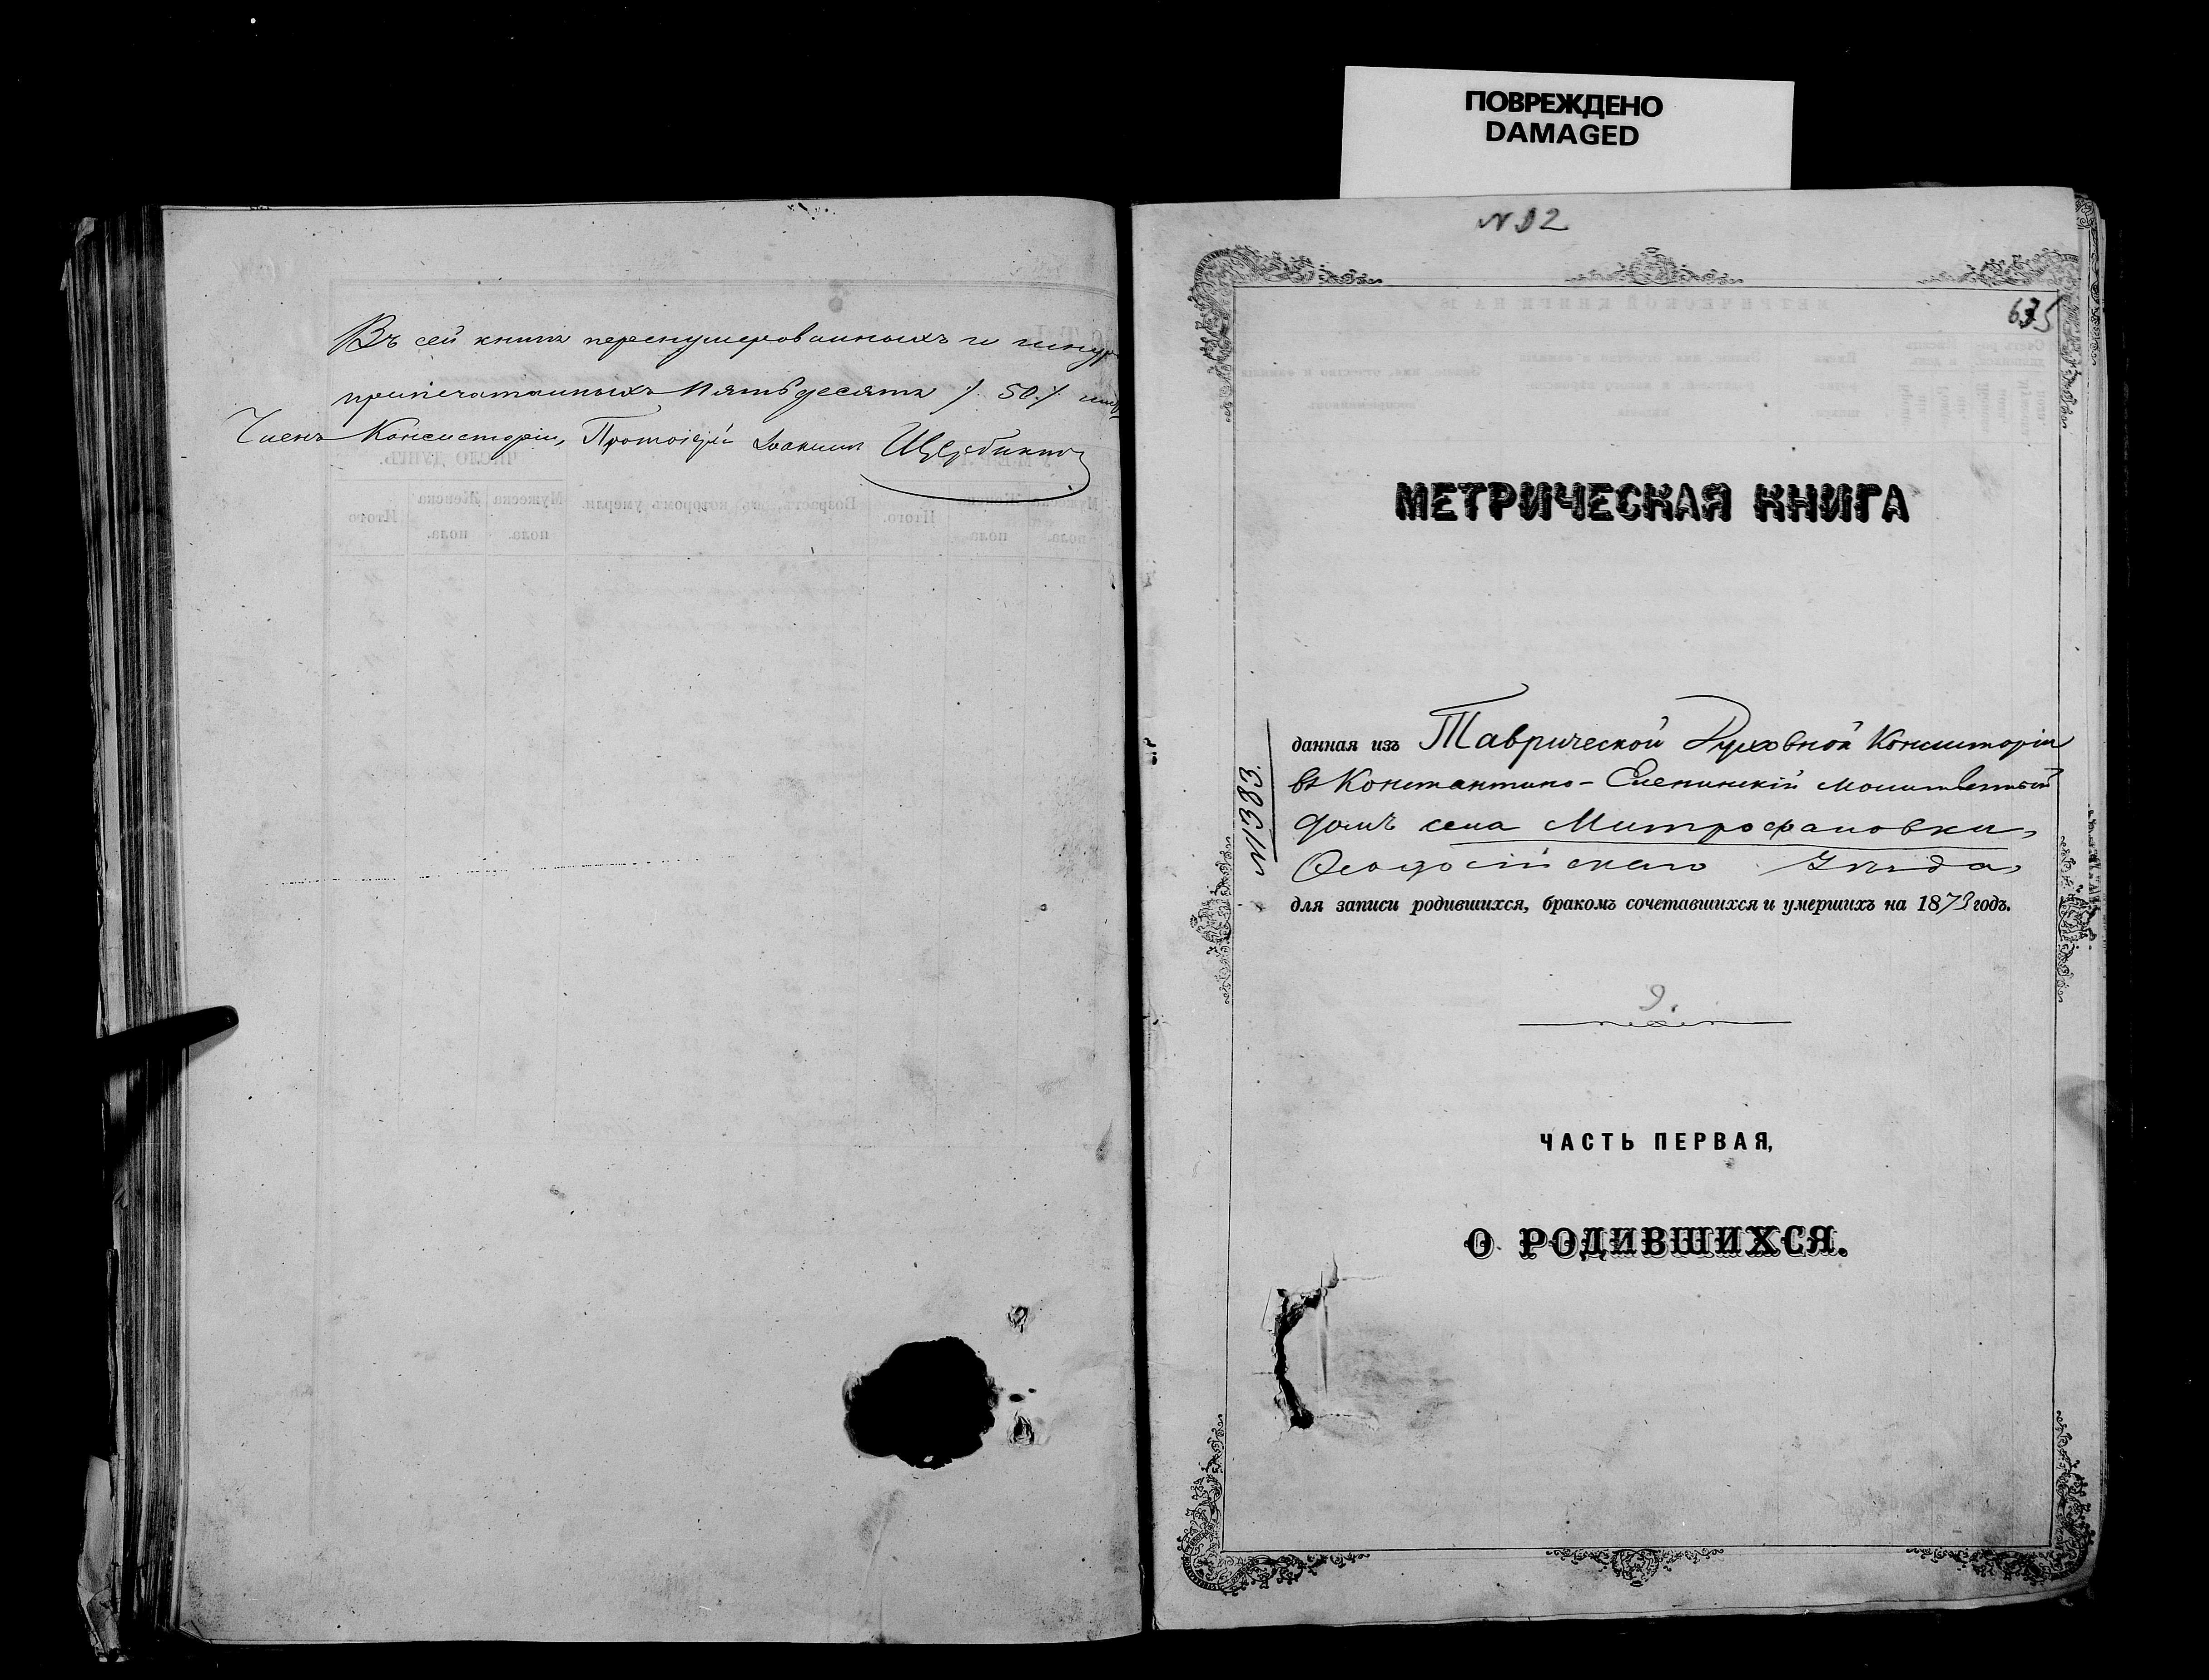 ПОВРЕЖДЕНО
DAMAGED
Въ сей книге перенумерованныхъ и шнур
припечатанныхъ пятьдесятъ /. 50 ./
Членъ Консисторіи, Протоіерей Іоаннъ Щербинин
N 12
635
МЕТРИЧЕСКАЯ КНИГА
N 1383.
данная изъ Таврической Духовной Консисторіи
въ Константино-Еленинскій молитвенный
домъ села Митрофановки,
Ѳеодосійскаго Уѣзда
для записи родившихся, бракомъ сочетавшихся и умершихъ на 1873 годъ.
9.
ЧАСТЬ ПЕРВАЯ,
О РОДИВШИХСЯ.